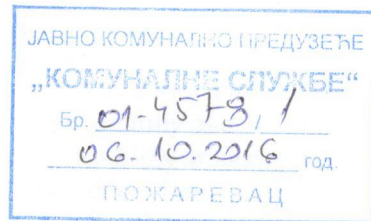 ЈАВНО КОМУНАЛНО ПРЕДУЗЕЋЕ
„КОМУНАЛНЕ СЛУЖБЕ“
Бр. 01-4579/1
06.10.2016 год.
ПОЖАРЕВАЦ